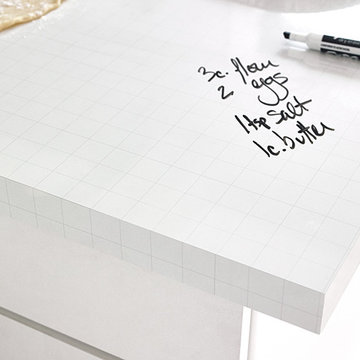 3c. flour
2 eggs
1 tsp salt
1c. butter